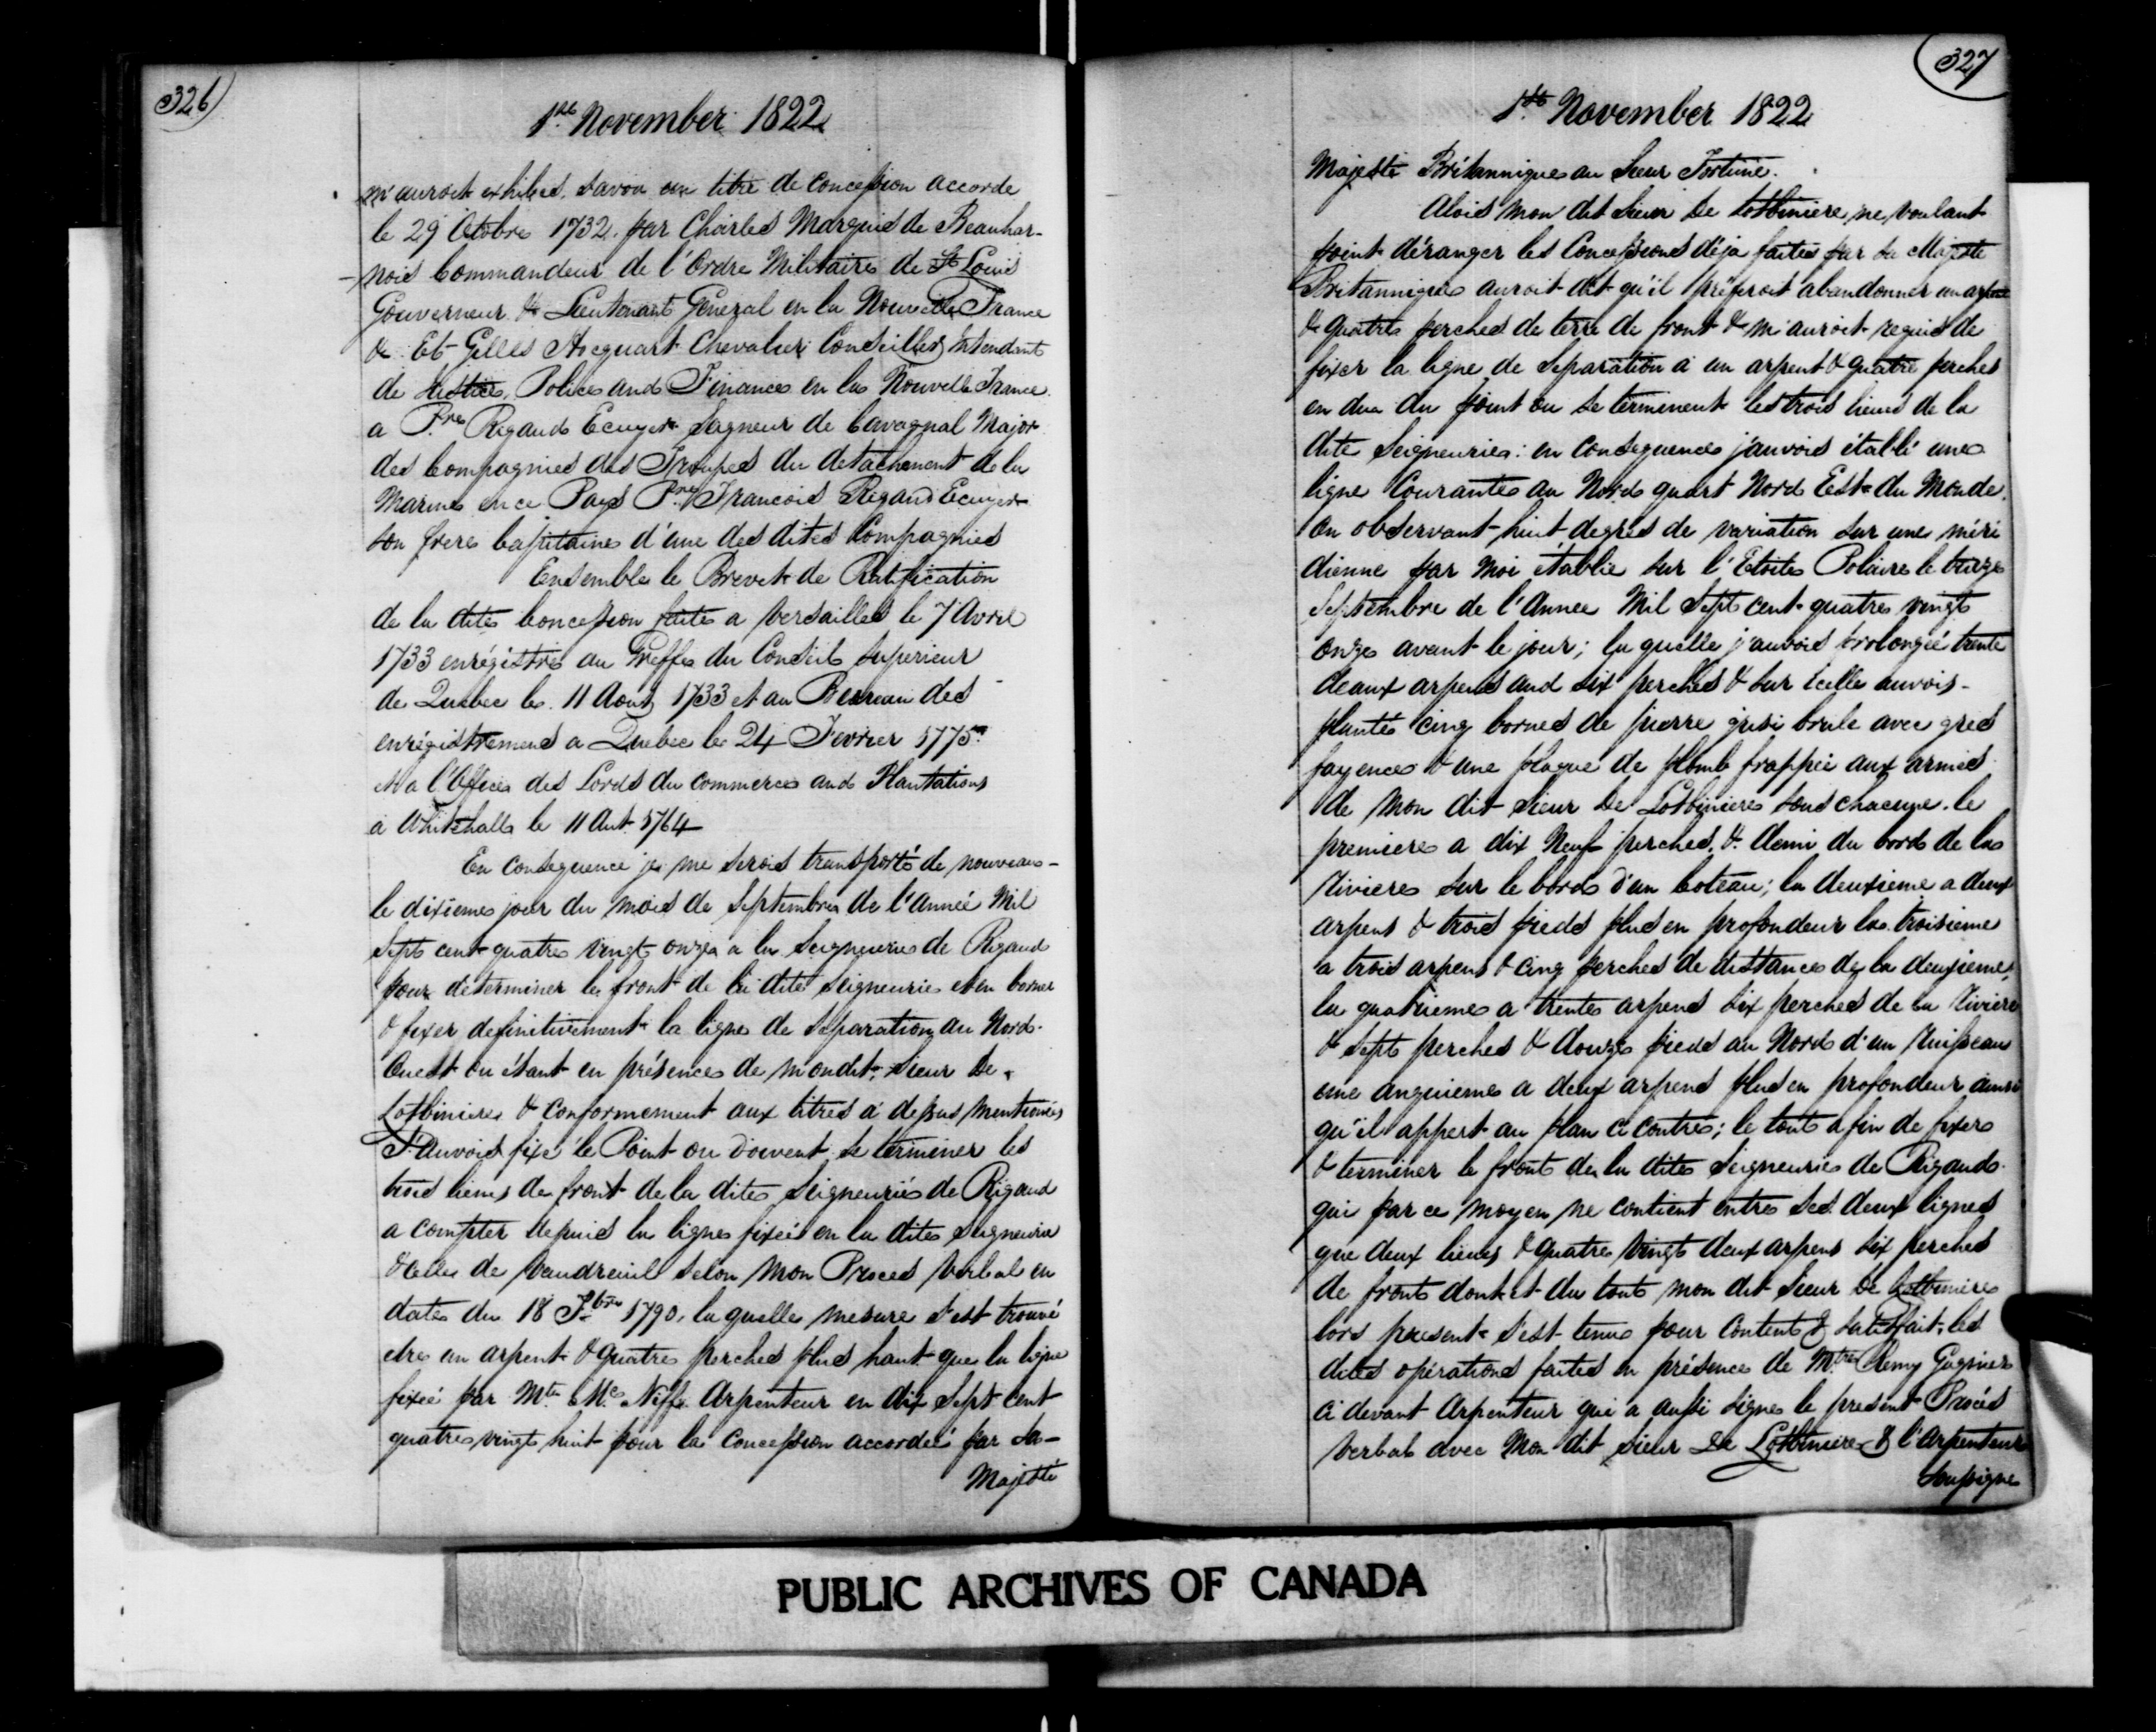 326
1st November 1822
m'auroit exhibés, Savoir un titre de Concession accorde
le 29 Octobre 1732. par Charles Marquis de Beauhar-
-nois Commandeur de l'Ordre Militaire de St Louis
Gouverneur & Lieutenant General en la Nouvelle France
& Et Gilles Hocquart Chevalier Conseiller Intendant
de Justice, Police and Finances en la Nouvelle France.
a Pre Rigaud Ecuyer Seigneur de Cavagnal Major
des Compagnies des Troupes du detachement de la
Marine en ce Pays Pre Francois Rigaud Ecuyer
son frere Capitaine d'une des dites Compagnies
Ensemble le Brevet de Ratification
de la dite Concession faite a Versailles le 7 Avril
1733 enrégistré au Greffe du Conseil Superieur
de Quebec le 11 Aout 1733 et au Bureau des
enrégistremens a Quebec le 24 Fevrier 1775
et a l'Office des Lords du commerce and Plantations
à Whitehall le 11 Aut 1764
En consequence je me serois transporté de nouveau-
le dixieme jour du mois de Septembre de l'année Mil
Sept cent quatre vingt onze a la Seigneurie de Rigaud
pour déterminer le front de la dite Seigneurie et en borner
& fixer definitivement la ligne de Séparation au Nord-
Ouest ou étant en présence de mondit Sieur De
Lotbiniere & Conformement aux titres a' dessus mentionés
J'auvois fixé le Point ou doivent se terminer les
trois lieues de front de la dite Seigneurie de Rigaud
a compter depuis la ligne fixée en la dite Seigneurie
& celle de Vaudreuil selon mon Proces Verbal en
date du 18 7bre 1790, la quelle mesure s'est trouvé
etre un arpent & quatre perches plus haut que la ligne
fixée par Mtre Mc Niff Arpenteur en dix Sept cent
quatre vingt huit pour la Concession accordée par Sa-
Majesté
327
1st November 1822
Majesté Britannique au Sieur Fortune.
Alois mon dit Sieur De Lotbiniere, ne voulant
point déranger les Concessions déja faites par Sa Majesté
Britannique auroit dit qu'il préferoit abandonner un arpent
& quatre perches de terre de front & m'auroit requis de
fixer la ligne de Séparation à un arpent & quatre perches
en dua du point ou se terminent les trois lieues de la
dite Seigneurie: en Consequence j'auvois établi une
ligne Courante au Nord quart Nord Est du Monde.
en observant huit degrés de variation sur une méri
dienne par moi établie sur l'Etoile Polaire le treize
Septembre de l'Annee Mil Sept cent quatre vingt
onze avant le jour; la quelle j'auvois prolongée trente
deaux arpens and six perches & sur icelle auvois-
plantés cinq bornes de pierre grisi brule avec gres
fayence & une plaque de plomb frappée aux armes
de Mon dit Sieur De Lotbiniere sous chacune, le
premiere a dix Neuf perches, & demi du bord de la
Riviere sur le bord d'un Coteau; la deuxieme a deux
arpens & trois pieds plus en profondeur la troisieme
a trois arpens & cinq perches de distance de la deuxieme,
la quatrieme a trente arpens six perches de la Riviere
& sept perches & douze pieds au Nord d'un Ruisseau
une anquieme a deux arpens plus en profondeur ainsi
qu'il appert au plan ci contre; le tout afin de fixer
& terminer le front de la dite Seigneurie de Rigaud
qui par ce moyen ne contient entre ses deux lignes
que deux lieues & quatre vingt deux arpens six perches
de front dont et du tout mon dit Sieur De Lotbiniere
lors present s'est tenu pour Content & Satisfait, les
dites opérations faites en présence de Mtre Remy Gagnier
ci devant Arpenteur qui a aussi Signe le present Procés
verbal avec Mon dit Sieur De Lotbiniere & l'Arpenteur
Soussigne
PUBLIC ARCHIVES OF CANADA